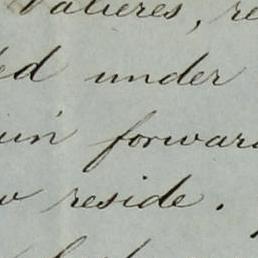 Valieres, re
ed under
uin forward
w reside.